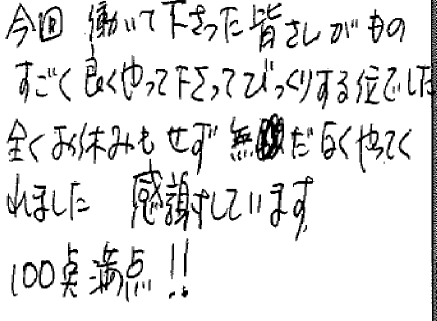 今回 働いて下さった皆さんがもの
すごく良くやって下さってびっくりする位でした
全くお休みもせず無だなくやってく
れました 感謝しています
100点満点!!